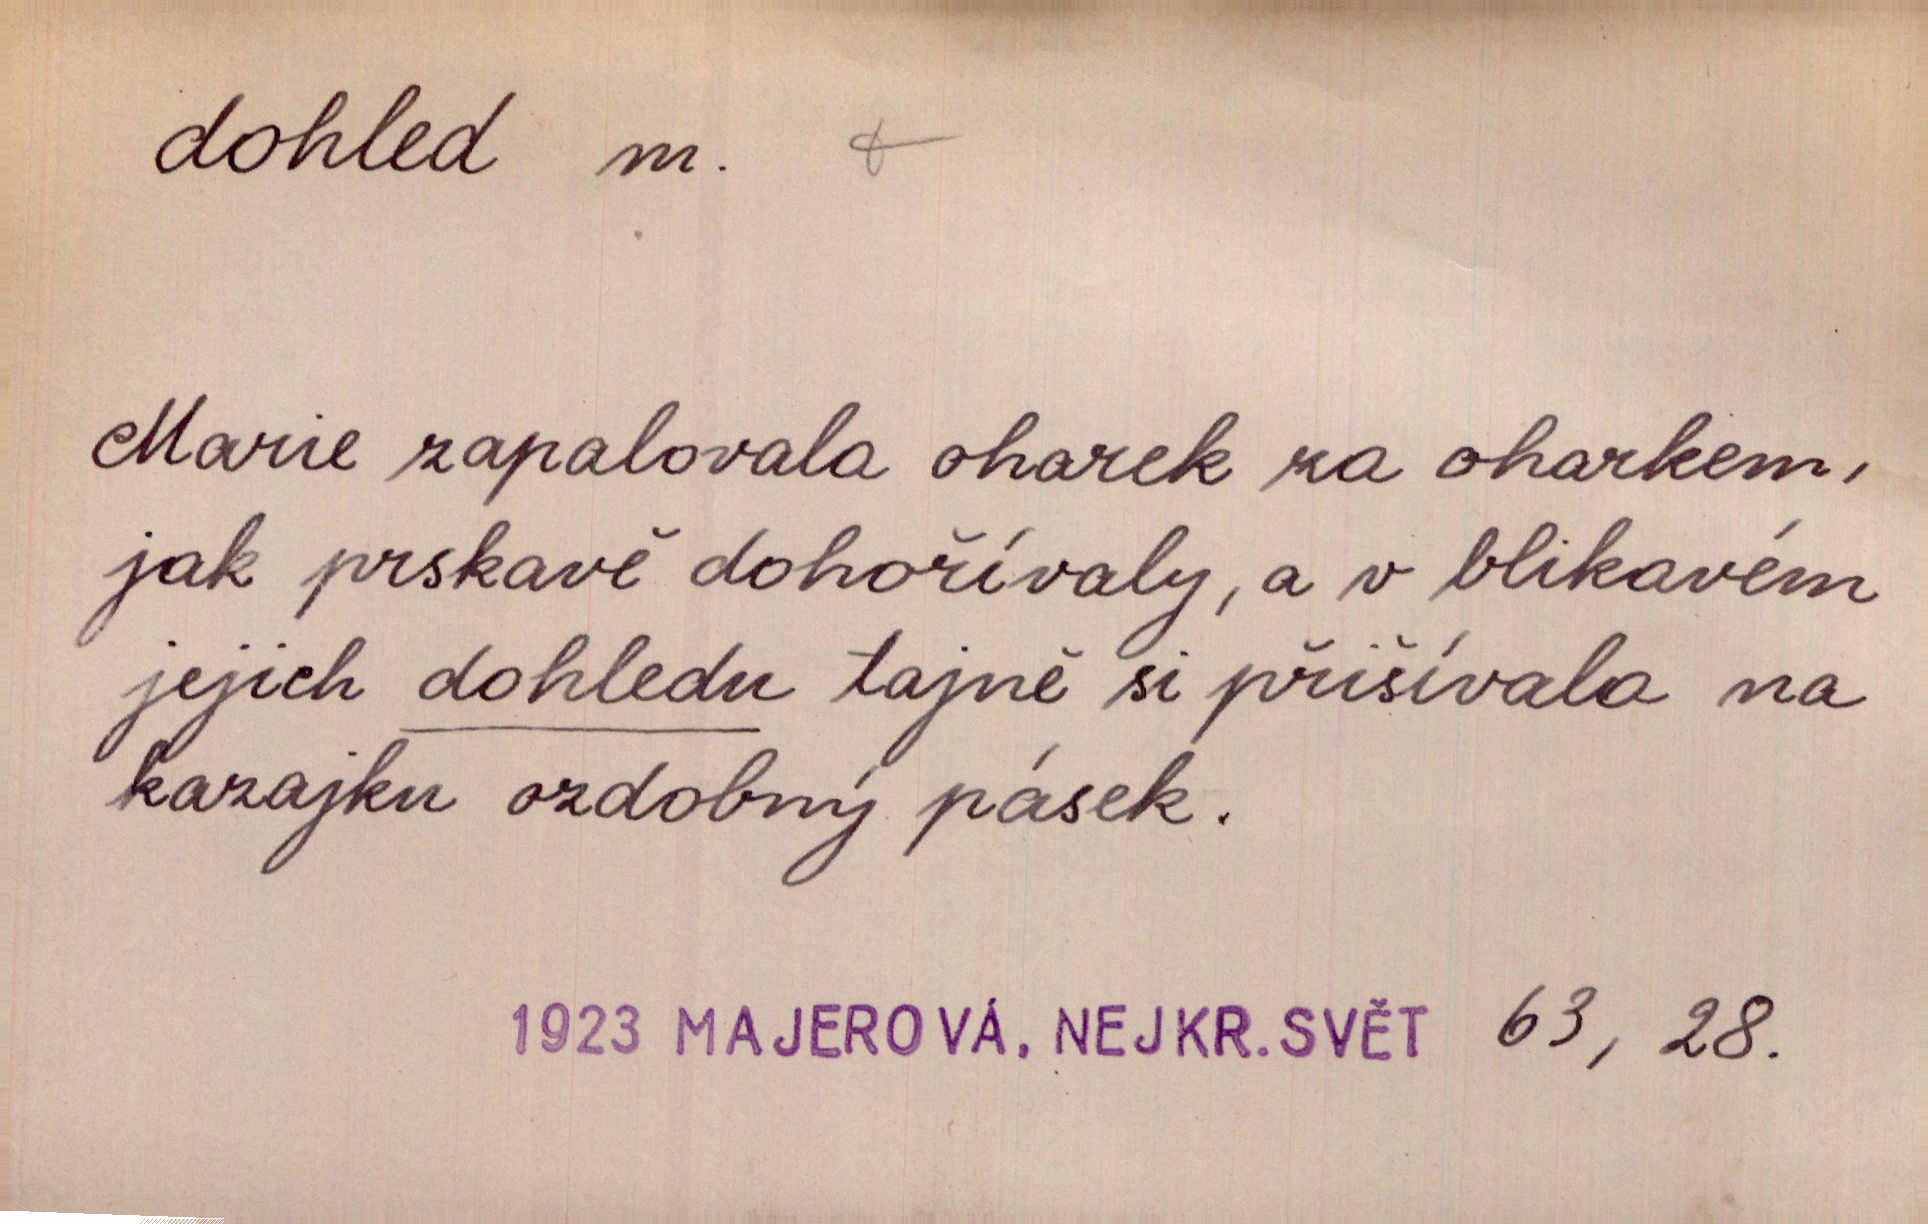 dohled m.
Marie zapalovala oharek za oharkem,
jak prskavě dohořívaly, a v blikavém
jejich dohledu tajně si přišívala na
kazajku ozdobný pásek.
1923 MAJEROVÁ. NEJKR. SVĚT 63, 28.